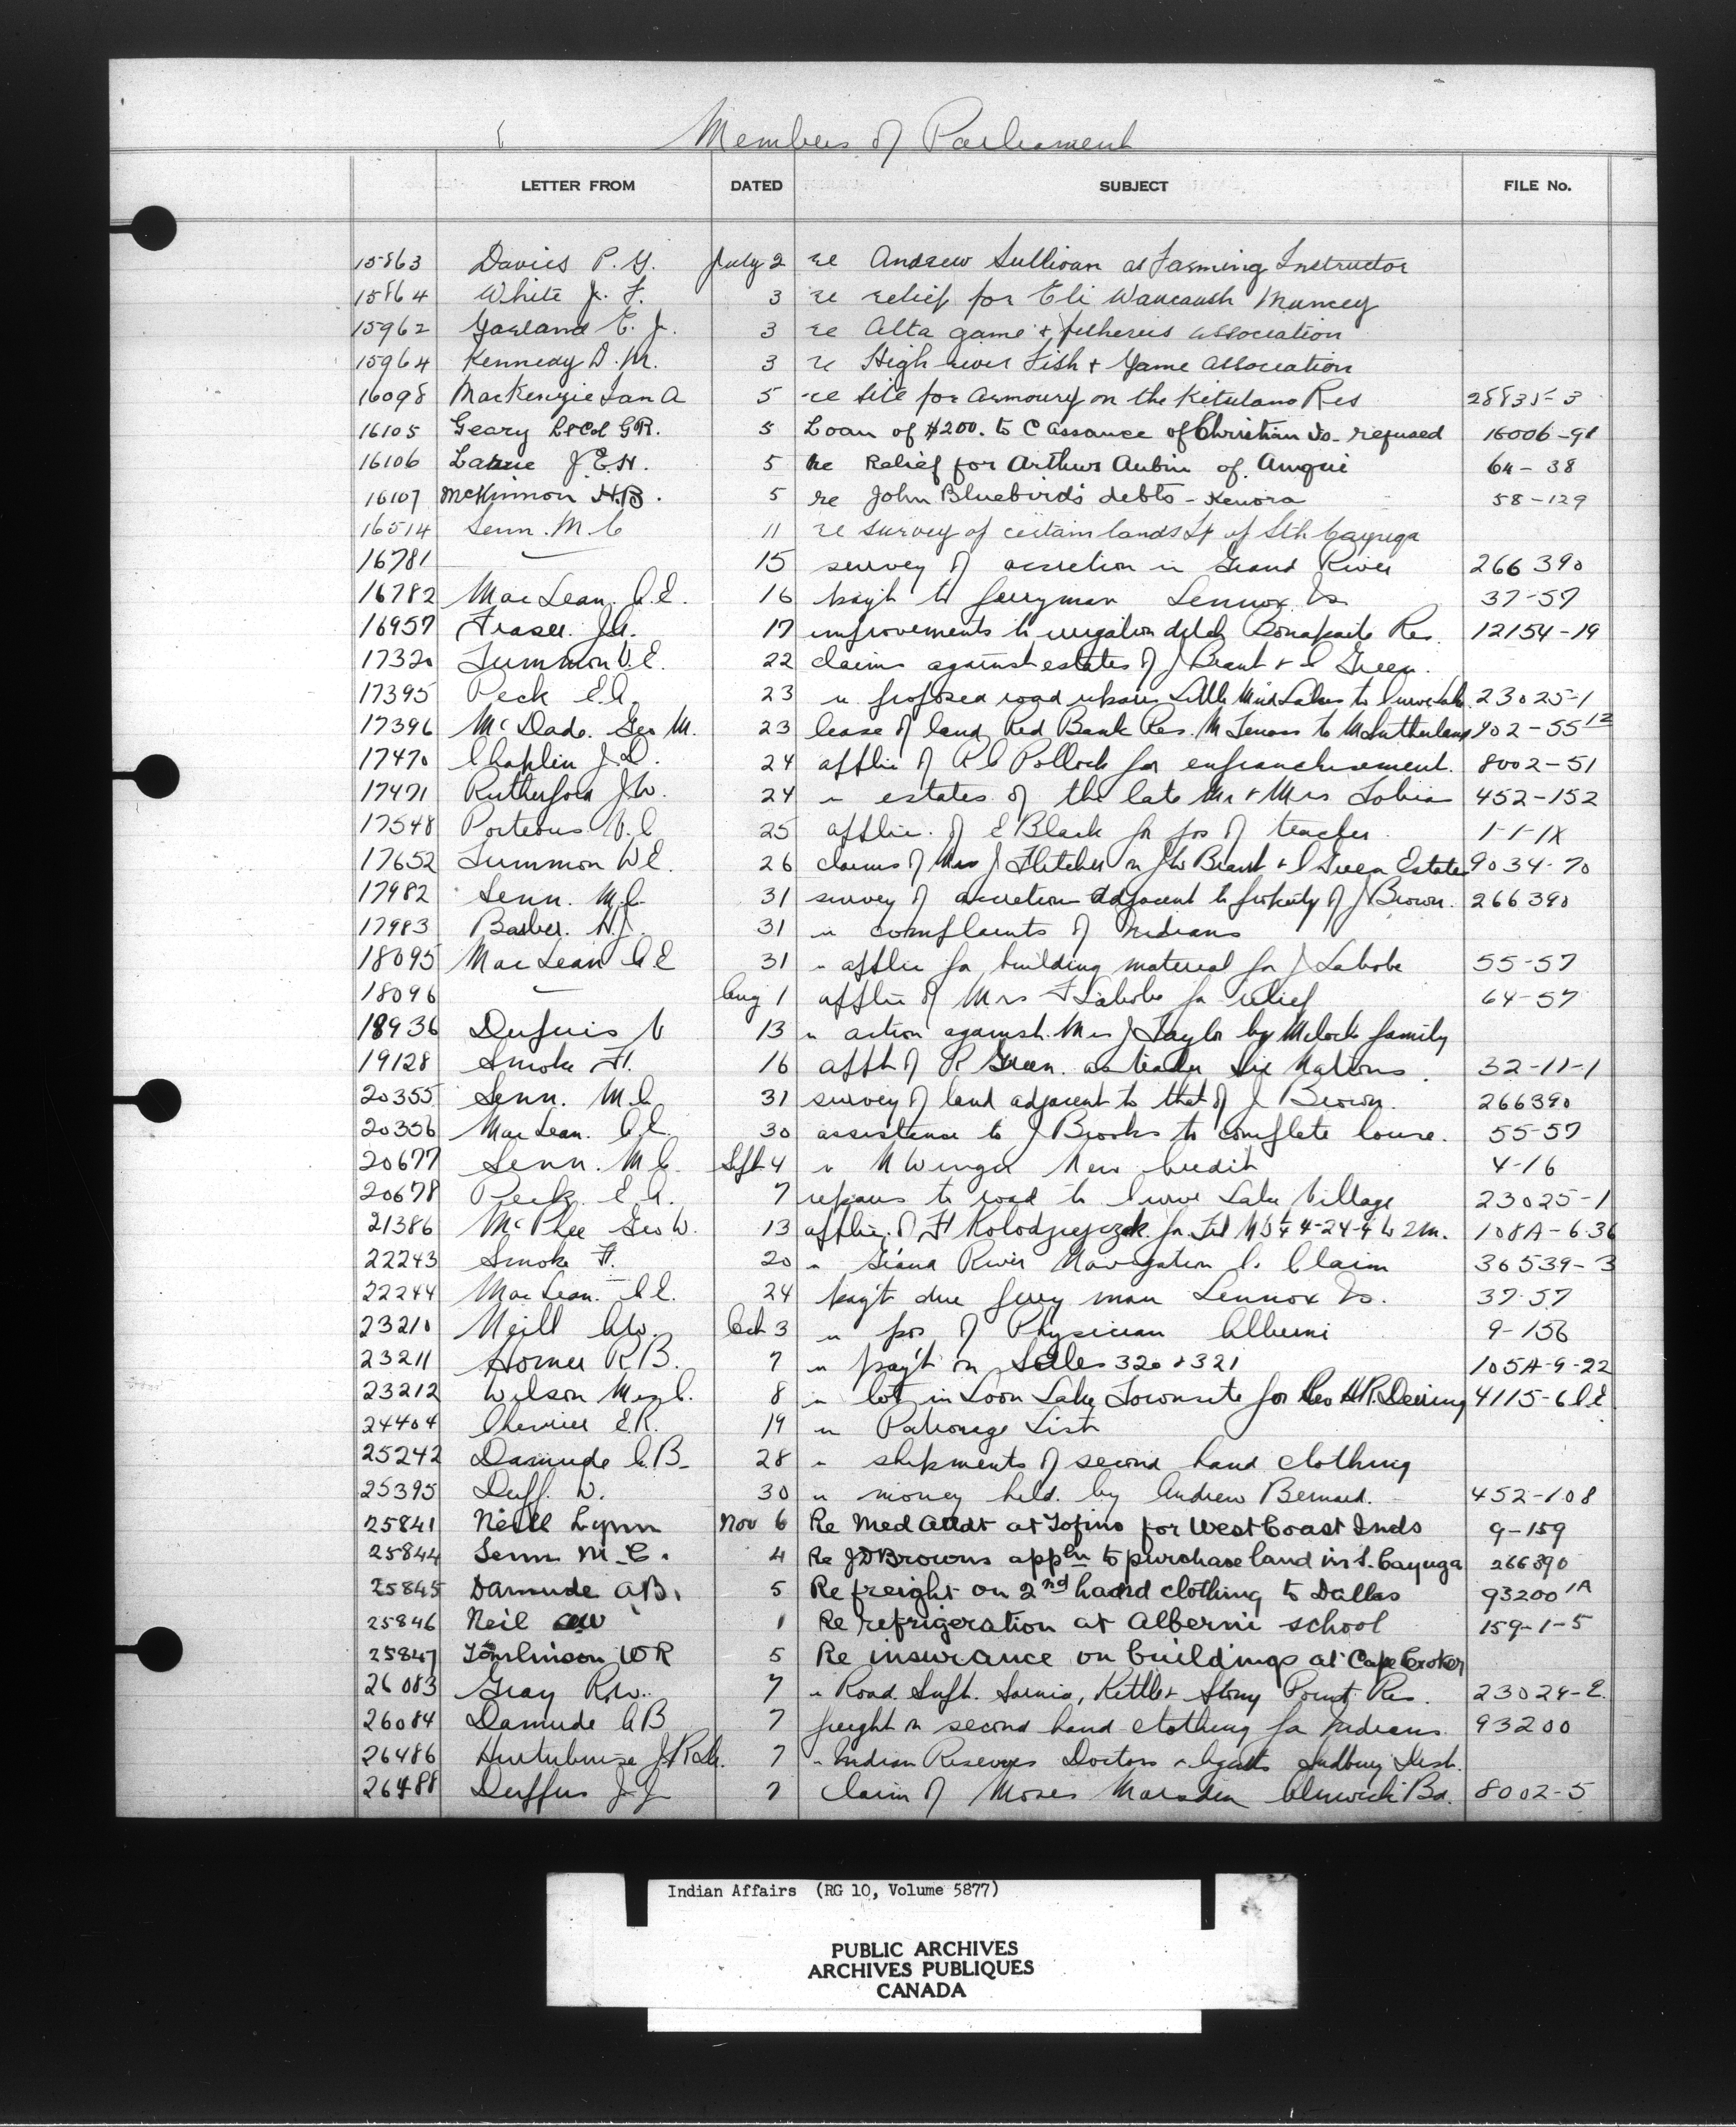 Members of Parliament
LETTER FROM DATED SUBJECT FILE No.
15863 Davies P. G. July 2 re Andrew Sullivan as Farming Instructor
15864 White J. F. 3 re relief for Eli Waucaush Muncey
15962 Garland E. J. 3 re Alta game & fisheries association
15964 Kennedy D. M. 3 re High river Fish & Game Association
16098 MacKenzie Ian A 5 re Site for Armoury on the Kitsilano Res 28835-3
16105 Geary Lt Col G.R. 5 Loan of $200. to C Assance of Christian Is. refused 16006-91
16106 Larue J.E.H. 5 Re Relief for Arthur Aubin of Amqui 64-38
16107 McKinnon H.B. 5 re John Bluebird's debts - Kenora 58-129
16514 Senn. M.C 11 re survey of certain lands Tp of Sth Cayuga
16781 — 15 survey of accretion in Grand River 266390
16782 MacLean A.E. 16 pay't to ferryman Lennox Is 37-57
16957 Fraser. J.A. 17 improvements to irrigation ditch Bonaparte Res. 12154-19
17320 Tummon W.E. 22 claims against estates of J Brant & I Green.
17395 Peck E.A. 23 re proposed road repairs Little Mud Lakes to Curve Lake 23025-1
17396 McDade. Geo M. 23 lease of land Red Bank Res. M Tenass to M Sutherland 402-55 12
17470 Chaplin J.D. 24 applic of R C Pollock for enfranchisement. 8002-51
17471 Rutherford J.W. 24 re estates of the late Mr & Mrs Tobias 452-152
17548 Porteous V.C 25 applic. of E Black for pos of teacher 1-1-1X
17652 Tummon W.E. 26 claims of Mrs J Fletcher on J W Brant & I Green Estates 9034-70
17982 Senn. M.C. 31 survey of accretion adjacent to property of J Brown. 266390
17983 Barber. H.J. 31 re complaints of Indians
18095 MacLean A E 31 re applic for building material for J Labobe 55-57
18096 — Aug 1 applic of Mrs F Labobe for relief 64-57
18936 Dupuis V 13 re action against Mrs J Taylor by Meloche family
19128 Smoke F. 16 appt of R. Green. as teacher Six Nations. 32-11-1
20355 Senn. M.C. 31 survey of land adjacent to that of J Brown. 266390
20356 MacLean. A.E. 30 assistance to J Brooks to complete house. 55-57
20677 Senn. M.C. Sept 4 re N Winger New Credit 4-16
20678 Peck. E.A. 7 repairs to road to Curve Lake Village 23025-1
21386 McPhee Geo W. 13 applic. of F Kolodziejczak for 4-24-4 W 2 m. 108A-6.36
22243 Smoke F. 20 re Grand River Navigation Co Claim 36539-3
22244 MacLean. A.E. 24 pay't due ferry man Lennox Is. 37-57
23210 Neill A.W. Oct 3 re pos of Physician Alberni 9-156
23211 Horner R.B. 7 re pay't on Sales 320 & 321 105A-9-22
23212 Wilson 8 re lot in Loon Lake Townsite for Rev H.R. Deering 4115-6
24404 Chevrier E.R. 19 re Patronage List
25242 Damude A.B. 28 re shipments of second hand clothing
25395 Duff. W. 30 re money held by Andrew Bernard. 452-108
25841 Neill Lynn Nov 6 Re Med Attdt at Tofino for West Coast Inds 9-159
25844 Senn M.C. 4 Re J D Browns appln to purchase land in S. Cayuga 266390
25845 Damude A.B. 5 Re freight on 2nd hand clothing to Dallas 93200 1A
25846 Neil AW 1 Re refrigeration at Alberni school 159-1-5
25847 Tomlinson W R 5 Re insurance on buildings at Cape Croker
26083 Gray R.W. 7 re Road Supt. Sarnia, Kettle & Stony Point Res. 23024-E.
26084 Damude A B 7 freight on second hand clothing for Indians 93200
26486 Hurtubise J.R. 7 re Indian Reserves Doctors & Agents Sudbury Dist.
26488 Duffus J J 7 Claim of Moses Marsden Alnwick Bd. 8002-5
Indian Affairs (RG 10, Volume 5877)
PUBLIC ARCHIVES
ARCHIVES PUBLIQUES
CANADA